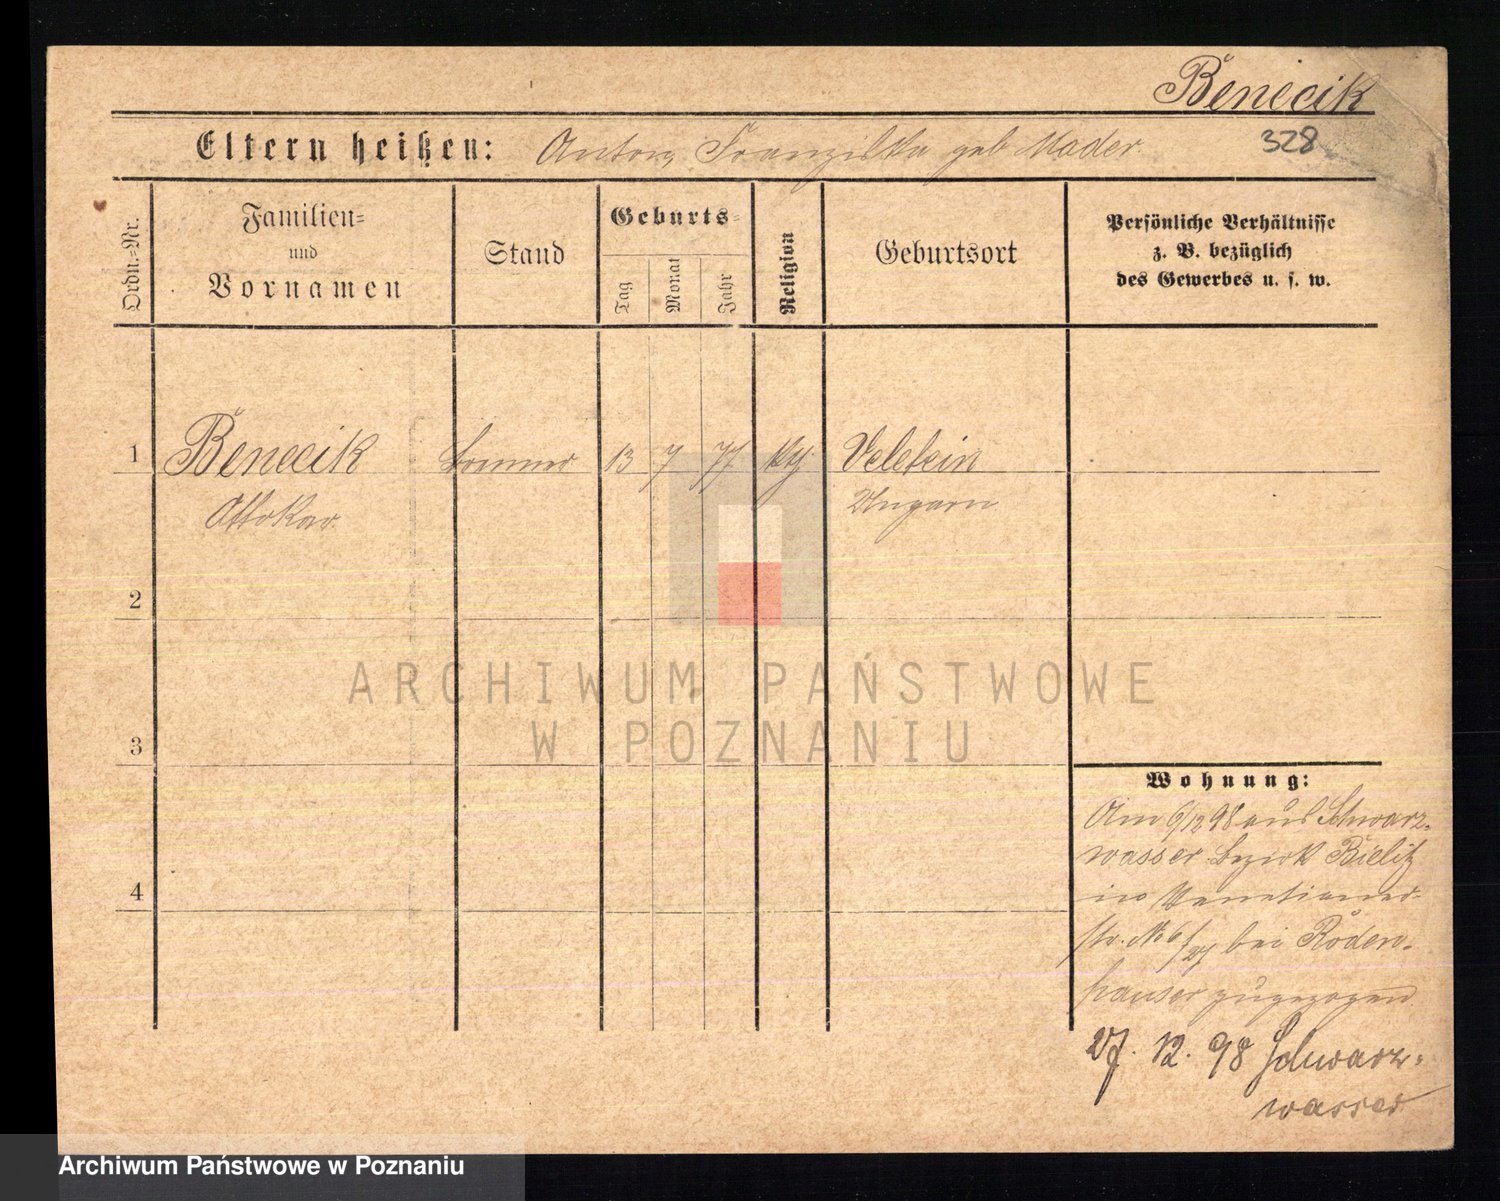 Benecik
Eltern heißen: Anton, Franziska geb Mader
328
Ordn.-Nr.
Familien-
und
Vornamen
Stand
Geburts-
Tag
Monat
Jahr
Religion
Geburtsort
Persönliche Verhältnisse
z. B. bezüglich
des Gewerbes u. s. w.
1 Benecik 13 7 77
Ottokar
Ungarn
2
3
4
ARCHIWUM PAŃSTWOWE
W POZNANIU
Wohnung:
Am 6/12 98 aus Schwarz-
wasser Bezirk Bielitz
in Venetianer-
str. No 6/27 bei Roden-
hauser zugezogen
27. 12. 98 Schwarz-
wasser
Archiwum Państwowe w Poznaniu